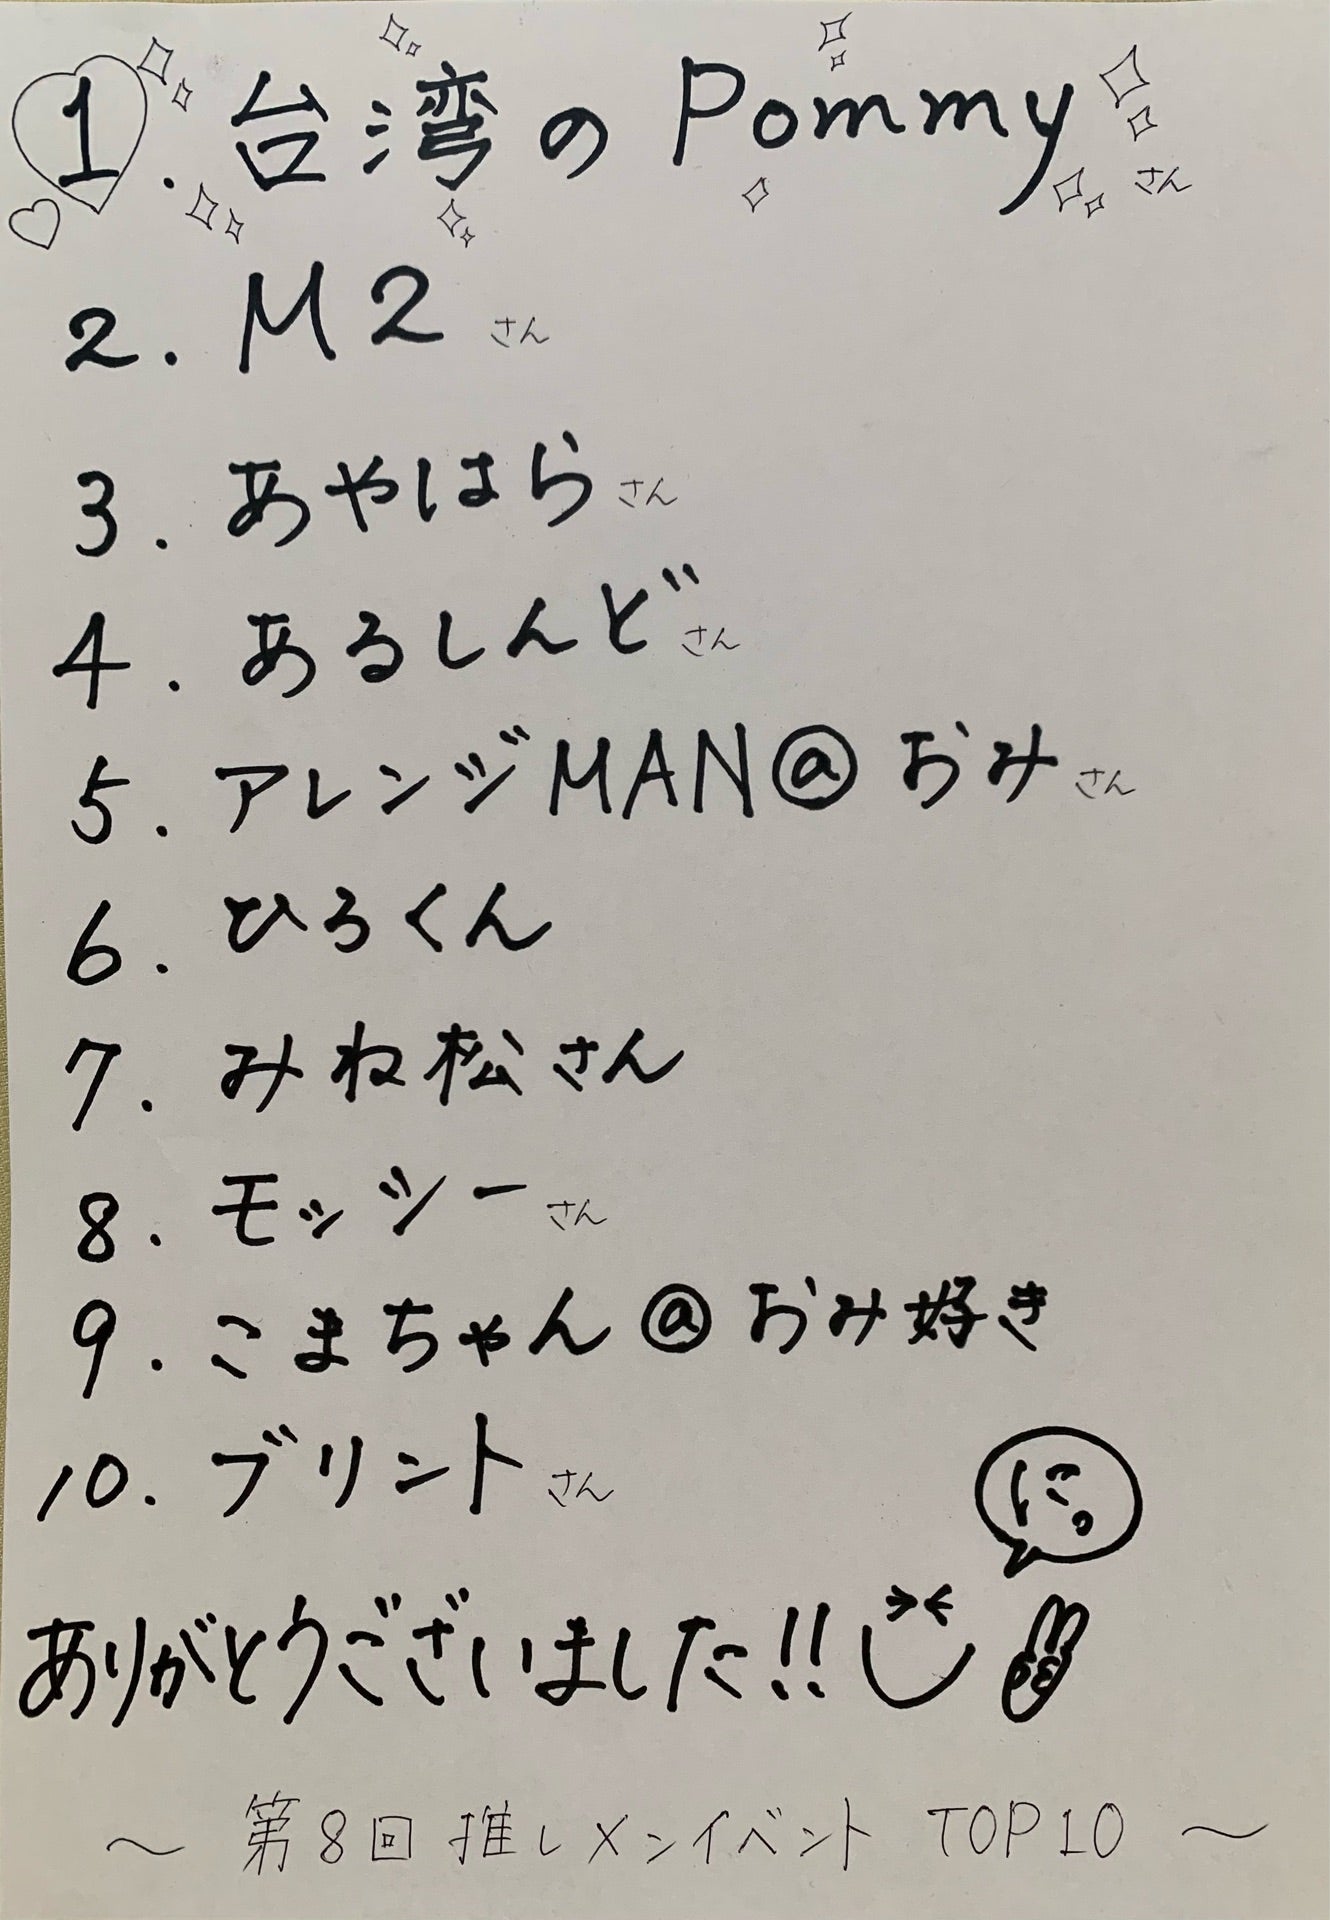 1. 台湾の Pommy さん
2. M2 さん
3. あやはら さん
4. あるしんど さん
5. アレンジMAN@おみ さん
6. ひろくん
7. みね松さん
8. モッシー さん
9. こまちゃん@おみ好き
10. ブリント さん
にっ
ありがとうございました!!
～ 第8回 推しメンイベント TOP10 ～